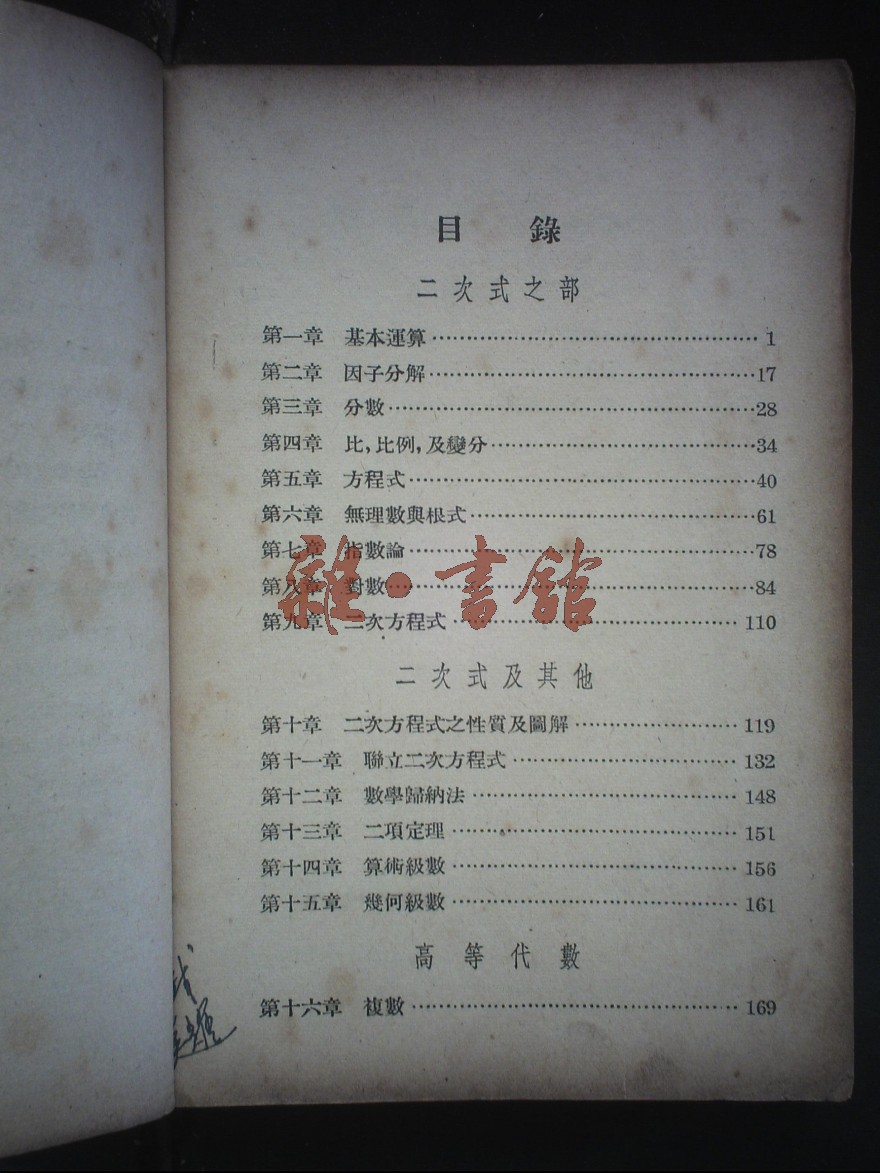 目錄
二次式之部
第一章 基本運算……………………………………………1
第二章 因子分解……………………………………………17
第三章 分數……………………………………………28
第四章 比,比例,及變分……………………………………………34
第五章 方程式……………………………………………40
第六章 無理數與根式……………………………………………61
第七章 指數論……………………………………………78
第八章 對數……………………………………………84
第九章 二次方程式……………………………………………110
雜·書館
二次式及其他
第十章 二次方程式之性質及圖解……………………………………………119
第十一章 聯立二次方程式……………………………………………132
第十二章 數學歸納法……………………………………………148
第十三章 二項定理……………………………………………151
第十四章 算術級數……………………………………………156
第十五章 幾何級數……………………………………………161
高等代數
第十六章 複數……………………………………………169